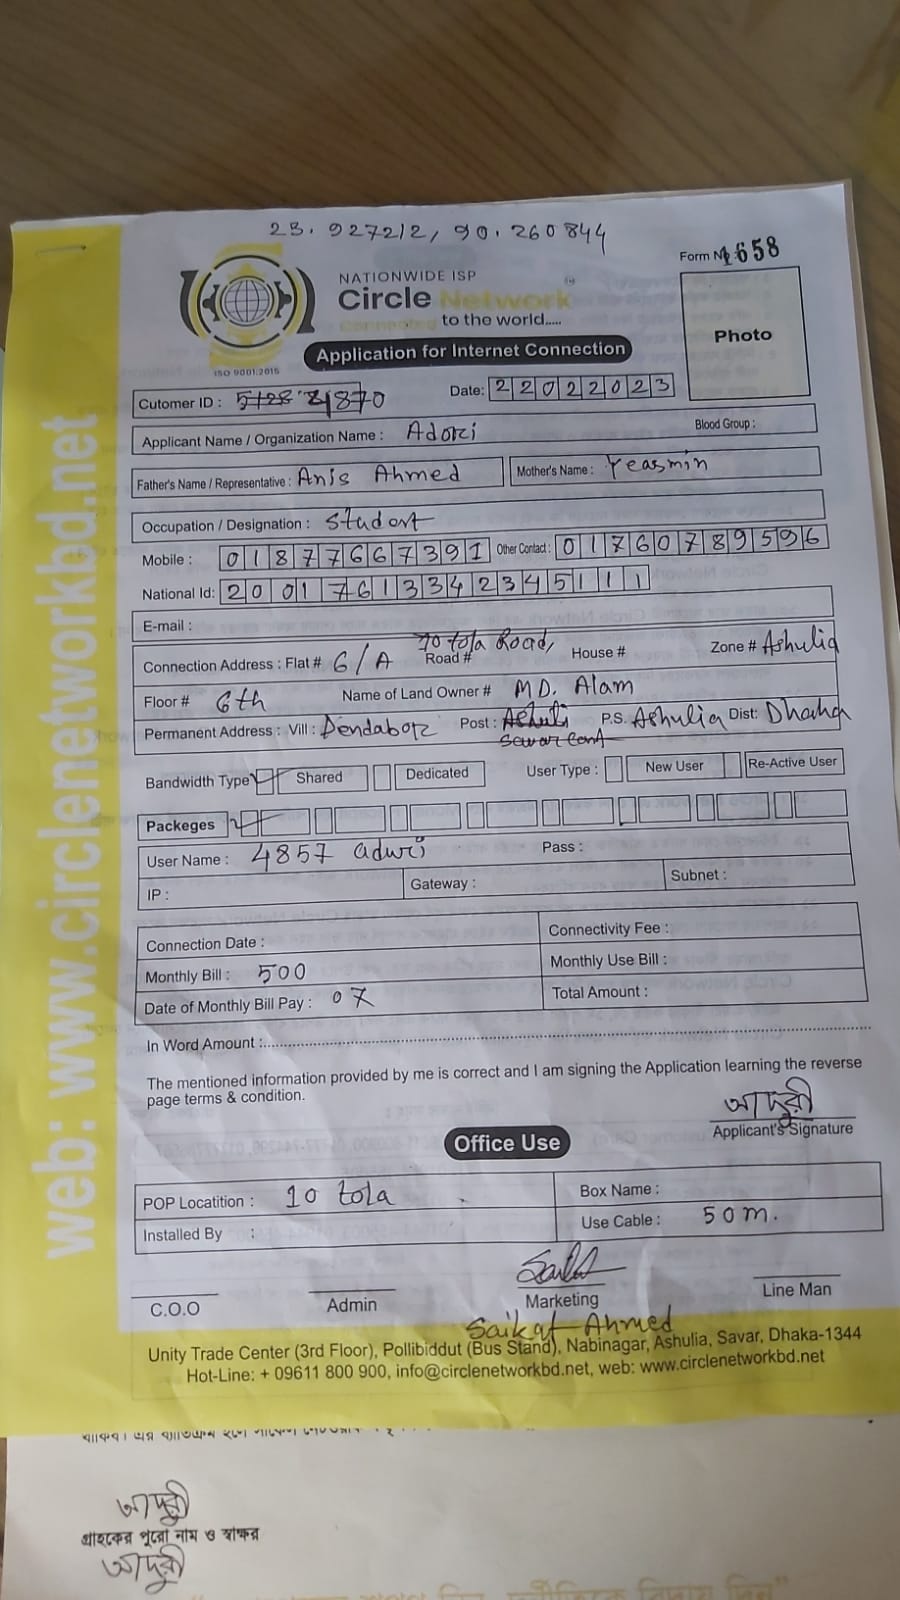 23.927212, 90.260844
Form No 1658
NATIONWIDE ISP
Circle Network
Connecting to the world.....
ISO 9001:2015
Application for Internet Connection
Photo
Cutomer ID : 5128 21870
Date: 22022023
Applicant Name / Organization Name : Adori
Blood Group :
Father's Name / Representative : Anis Ahmed
Mother's Name : Yeasmin
Occupation / Designation : Studort
Mobile : 01877667391
Other Contact : 01760789596
National Id: 20017613342345111
E-mail :
Connection Address : Flat # 6/A Road # 10 tola Road, House # Zone # Ashulia
Floor # 6th Name of Land Owner # MD. Alam
Permanent Address : Vill : Dendabor Post : Ashuli Savar Cant P.S. Ashulia Dist: Dhaka
Bandwidth Type Shared Dedicated User Type : New User Re-Active User
Packeges
User Name : 4857 aduri Pass :
IP : Gateway : Subnet :
Connection Date : Connectivity Fee :
Monthly Bill : 500 Monthly Use Bill :
Date of Monthly Bill Pay : 07 Total Amount :
In Word Amount :
The mentioned information provided by me is correct and I am signing the Application learning the reverse
page terms & condition.
আদুরী
Applicant's Signature
Office Use
POP Locatition : 10 tola Box Name :
Installed By : Use Cable : 50m.
C.O.O Admin Marketing Line Man
Saikat Ahmed
Unity Trade Center (3rd Floor), Pollibiddut (Bus Stand), Nabinagar, Ashulia, Savar, Dhaka-1344
Hot-Line: + 09611 800 900, info@circlenetworkbd.net, web: www.circlenetworkbd.net
web: www.circlenetworkbd.net
আদুরী
গ্রাহকের পুরো নাম ও স্বাক্ষর
আদুরী